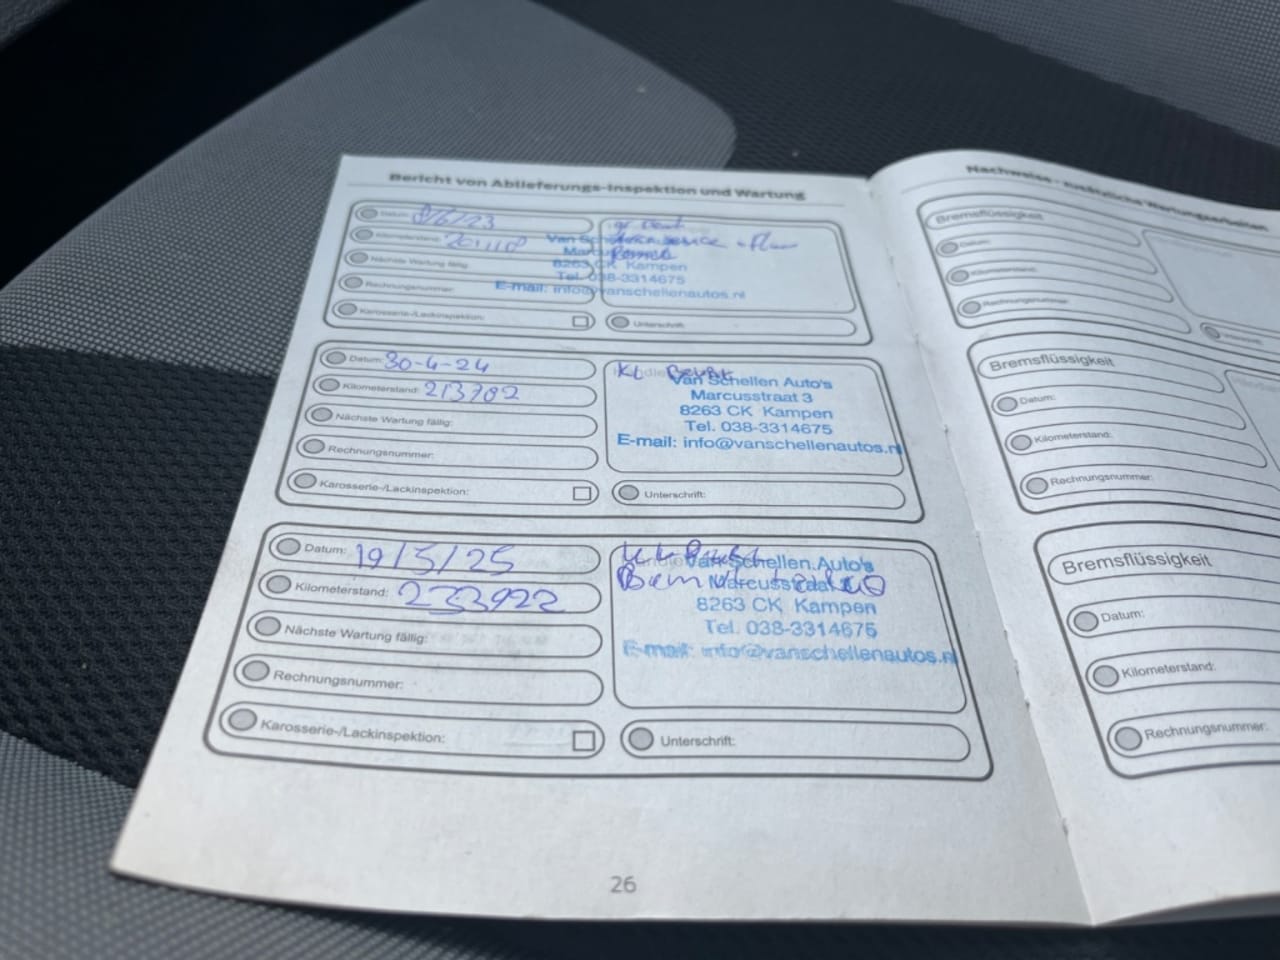 Bericht von Ablieferungs-Inspektion und Wartung
Datum:
Kilometerstand:
Nächste Wartung fällig:
Rechnungsnummer:
Karosserie-/Lackinspektion:
Van
8263 CK Kampen
Tel. 038-3314675
E-mail: info@vanschellenautos.nl
Unterschrift:
Datum: 30-4-24
Kilometerstand: 213782
Nächste Wartung fällig:
Rechnungsnummer:
Karosserie-/Lackinspektion:
Van Schellen Auto's
Marcusstraat 3
8263 CK Kampen
Tel. 038-3314675
E-mail: info@vanschellenautos.nl
Unterschrift:
Datum: 19/5/25
Kilometerstand: 233922
Nächste Wartung fällig:
Rechnungsnummer:
Karosserie-/Lackinspektion:
Van Schellen Auto's
8263 CK Kampen
Tel. 038-3314675
E-mail: info@vanschellenautos.nl
Unterschrift:
26
Nachweise - zusätzliche Wartungsarbeiten
Bremsflüssigkeit
Datum:
Kilometerstand:
Rechnungsnummer:
Bremsflüssigkeit
Datum:
Kilometerstand:
Rechnungsnummer:
Bremsflüssigkeit
Datum:
Kilometerstand:
Rechnungsnummer: